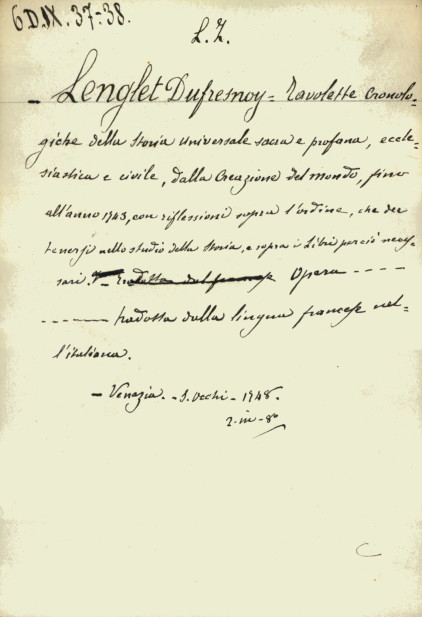 6 D.IX. 37-38.
L. Z.
- Lenglet Dufresnoy - Tavolette Cronolo-
giche della Storia Universale sacra e profana, eccle-
siastica e civile, dalla Creazione del mondo, fino
all'anno 1743, con riflessioni sopra l'ordine, che dee
tenersi nello studio della Storia, e sopra i Libri perciò neces-
sari. T- Tradotta dal francese Opera - - - -
- - - - - - - tradotta dalla lingua francese nel-
l'italiana.
- Venezia. - S. Occhi - 1748.
2. in - 8º
C